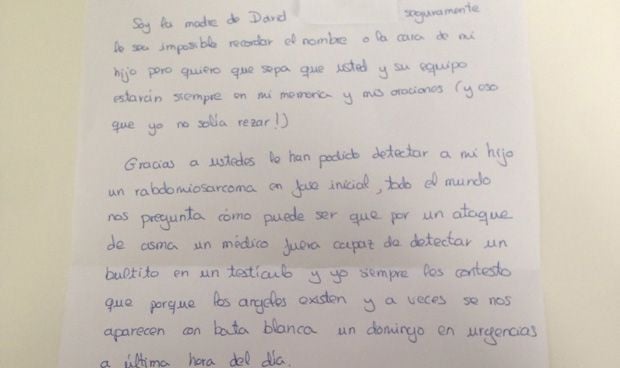 Soy la madre de David seguramente
le sea imposible recordar el nombre o la cara de mi
hijo pero quiero que sepa que usted y su equipo
estarán siempre en mi memoria y mis oraciones (y eso
que yo no solía rezar!)
Gracias a ustedes le han podido detectar a mi hijo
un rabdomiosarcoma en fase inicial, todo el mundo
nos pregunta cómo puede ser que por un ataque
de asma un médico fuera capaz de detectar un
bultito en un testículo y yo siempre les contesto
que porque los angeles existen y a veces se nos
aparecen con bata blanca un domingo en urgencias
a última hora del día.